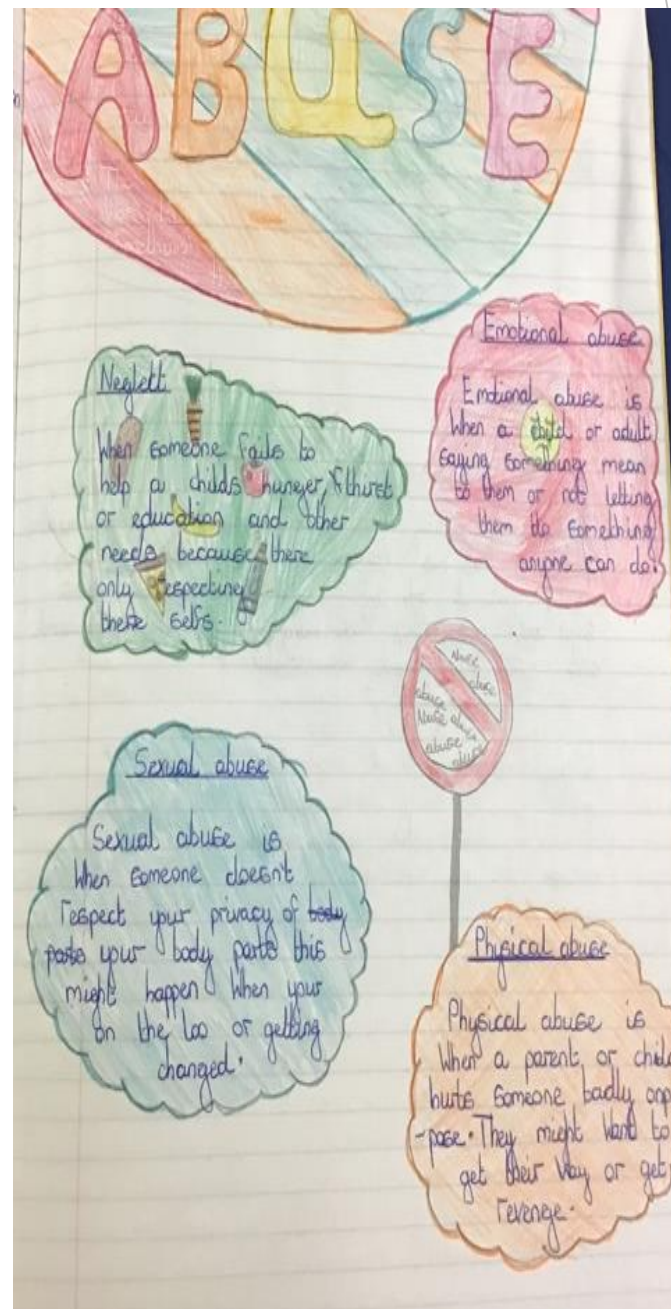 ABUSE
Neglett
When someone fails to
help a childs hunger, thirst
or education and other
needs because there
only respecting
there selfs.
Emotional abuse
Emotional abuse is
When a child or adult
saying something mean
to them or not letting
them do something
anyone can do.
abuse
abuse
abuse abuse
abuse
abuse
Sexual abuse
Sexual abuse is
When someone doesn't
respect your privacy of body
parts your body parts this
might happen When your
on the loo or getting
changed.
Physical abuse
Physical abuse is
When a parent or child
hurts someone badly onp
-pose. They might want to
get their way or get
revenge.